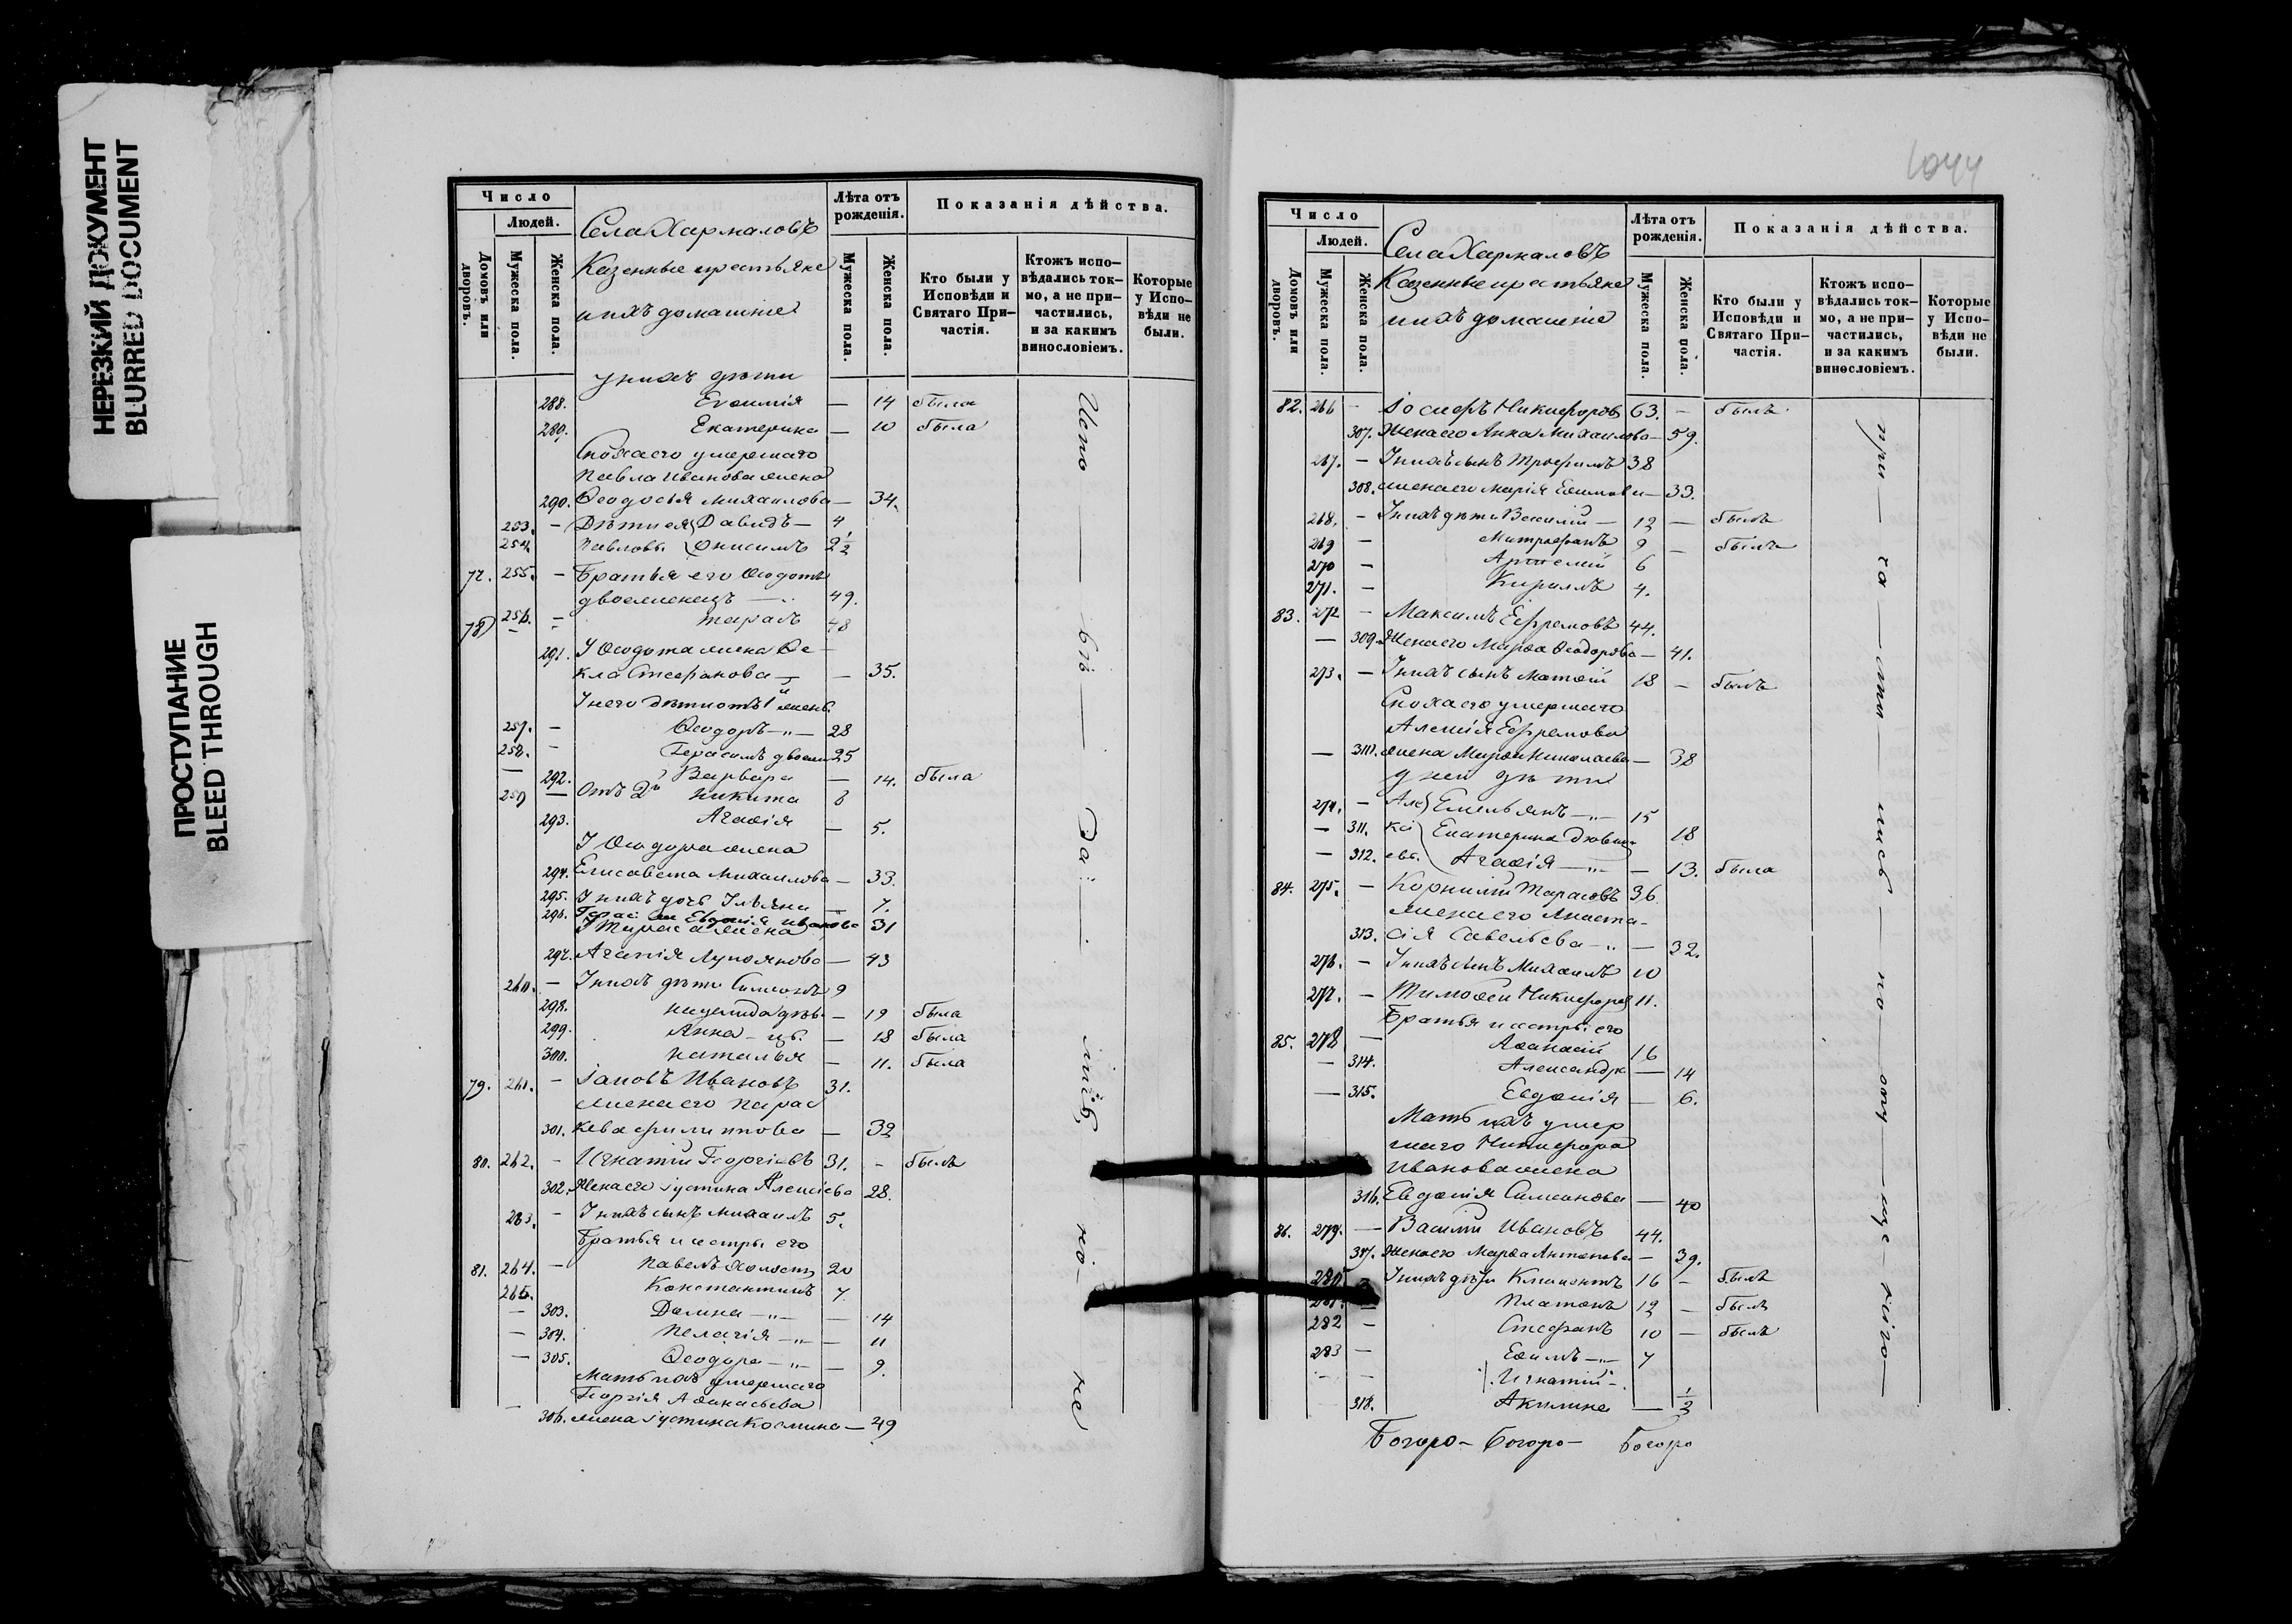 НЕРЕЗКИЙ ДОКУМЕНТ
BLURRED DOCUMENT
ПРОСТУПАНИЕ
BLEED THROUGH
Число
Людей.
Домовъ или дворовъ.
Мужеска пола.
Женска пола.
Села Хармаловъ
Казенные крестьяне
и ихъ домашніе
Лѣта отъ рожденія.
Мужеска пола.
Женска пола.
Показанія дѣйства.
Кто были у Исповѣди и Святаго Причастія.
Ктожъ исповѣдались токмо, а не причастились, и за какимъ винословіемъ.
Которые у Исповѣди не были.
У нихъ дѣти
288. Евѳимія — 14 была
289. Екатерина — 10 была
Сноха его умершаго
Павла Иванова жена
290. Ѳеодосія Михаилова — 34.
253. — Дѣти ея Давидъ — 4
254. Павловы Онисимъ 2 1/2
77. 255. — Братья его Ѳеодотъ
двоеженецъ — 49.
78 256. — Тарасъ 48
291. У Ѳеодота жена Ѳе-
кла Стефанова — 35.
У него дѣти отъ 1й жены
257. — Ѳеодоръ — 28
258. — Герасимъ двоежен 25
292. Варвара — 14. была
259 — Отъ 2й Никита 6
293. Агаѳія — 5.
У Ѳеодора жена
294. Елисавета Михаилова — 33.
295. У нихъ дочь Ульяна — 7.
296. Гераси Евдокія Иванова 31
У Тараса жена
297. Агапія Лукьянова — 43
260. — У нихъ дѣти Симеонъ 9
298. дѣв. — 19 была
299. Анна — 18 была
300. Наталья — 11. была
79. 261. — Іаковъ Ивановъ 31.
Жена его Парас
301. кева Филиппова — 32
80. 262. — Игнатій Георгіевъ 31. — былъ
302. Жена его Іустина Алексіева 28.
263. — У нихъ сынъ Михаилъ 5.
Братья и сестры его
81. 264. — Павелъ холостъ 20
265. Константинъ 7
— 303. Домна — 14
— 304. Пелагія — 11
— 305. Ѳеодора — 9.
Мать ихъ умершаго
Георгія Аѳанасьева
306. жена Іустина Космина — 49
Испо — вѣ — Да — — но — не
1044
Число
Людей.
Домовъ или дворовъ.
Мужеска пола.
Женска пола.
Села Хармаловъ
Казенные крестьяне
и ихъ домашніе
Лѣта отъ рожденія.
Мужеска пола.
Женска пола.
Показанія дѣйства.
Кто были у Исповѣди и Святаго Причастія.
Ктожъ исповѣдались токмо, а не причастились, и за какимъ винословіемъ.
Которые у Исповѣди не были.
82. 266 — Іосифъ Никифоровъ 63. — былъ
307. Жена его Анна Михаилова — 59.
267. — У нихъ сынъ Трофимъ 38
308. жена его Марія Ефимова — 33.
268. — У нихъ дѣти Василій — 12 — былъ
269 — Митрофанъ 9 — былъ
270 — Артемій 6
271. — Кириллъ 4.
83. 272 — Максимъ Ефремовъ 44.
— 309. Жена его Марѳа Ѳеодорова — 41.
273. — У нихъ сынъ Матѳій 18 — былъ
Сноха его умершаго
Алексія Ефремова
— 310. жена Марѳа Николаева — 38
У ней дѣти
274. — Але Емельянъ — 15
— 311. ксі Екатерина 18
— 312. евы. Агаѳія — 13. была
84. 275. — Корнилій Тарасовъ 36
жена его Анаста-
313. сія Савельева — 32.
276. — У нихъ сынъ Михаилъ 10
277. — Тимоѳей Никифоров 11.
Братья и сестры его
85. 278 — Аѳанасій 16
— 314. Александра — 14
— 315. Евдокія — 6.
Мать ихъ умер
шаго Никифора
Иванова жена
316. Евдокія Симеонова — 40
86. 279. — Василій Ивановъ 44.
317. Жена его Марѳа Антонова — 39.
280 — У нихъ дѣти Климентъ 16 — былъ
281. — Платонъ 12 — былъ
282 — Стефанъ 10 — былъ
283 — Ефимъ — 7
— Игнатій —
318. Акилина — 1/2
при — ча — сти — лись — по
Богоро- Богоро- Богоро